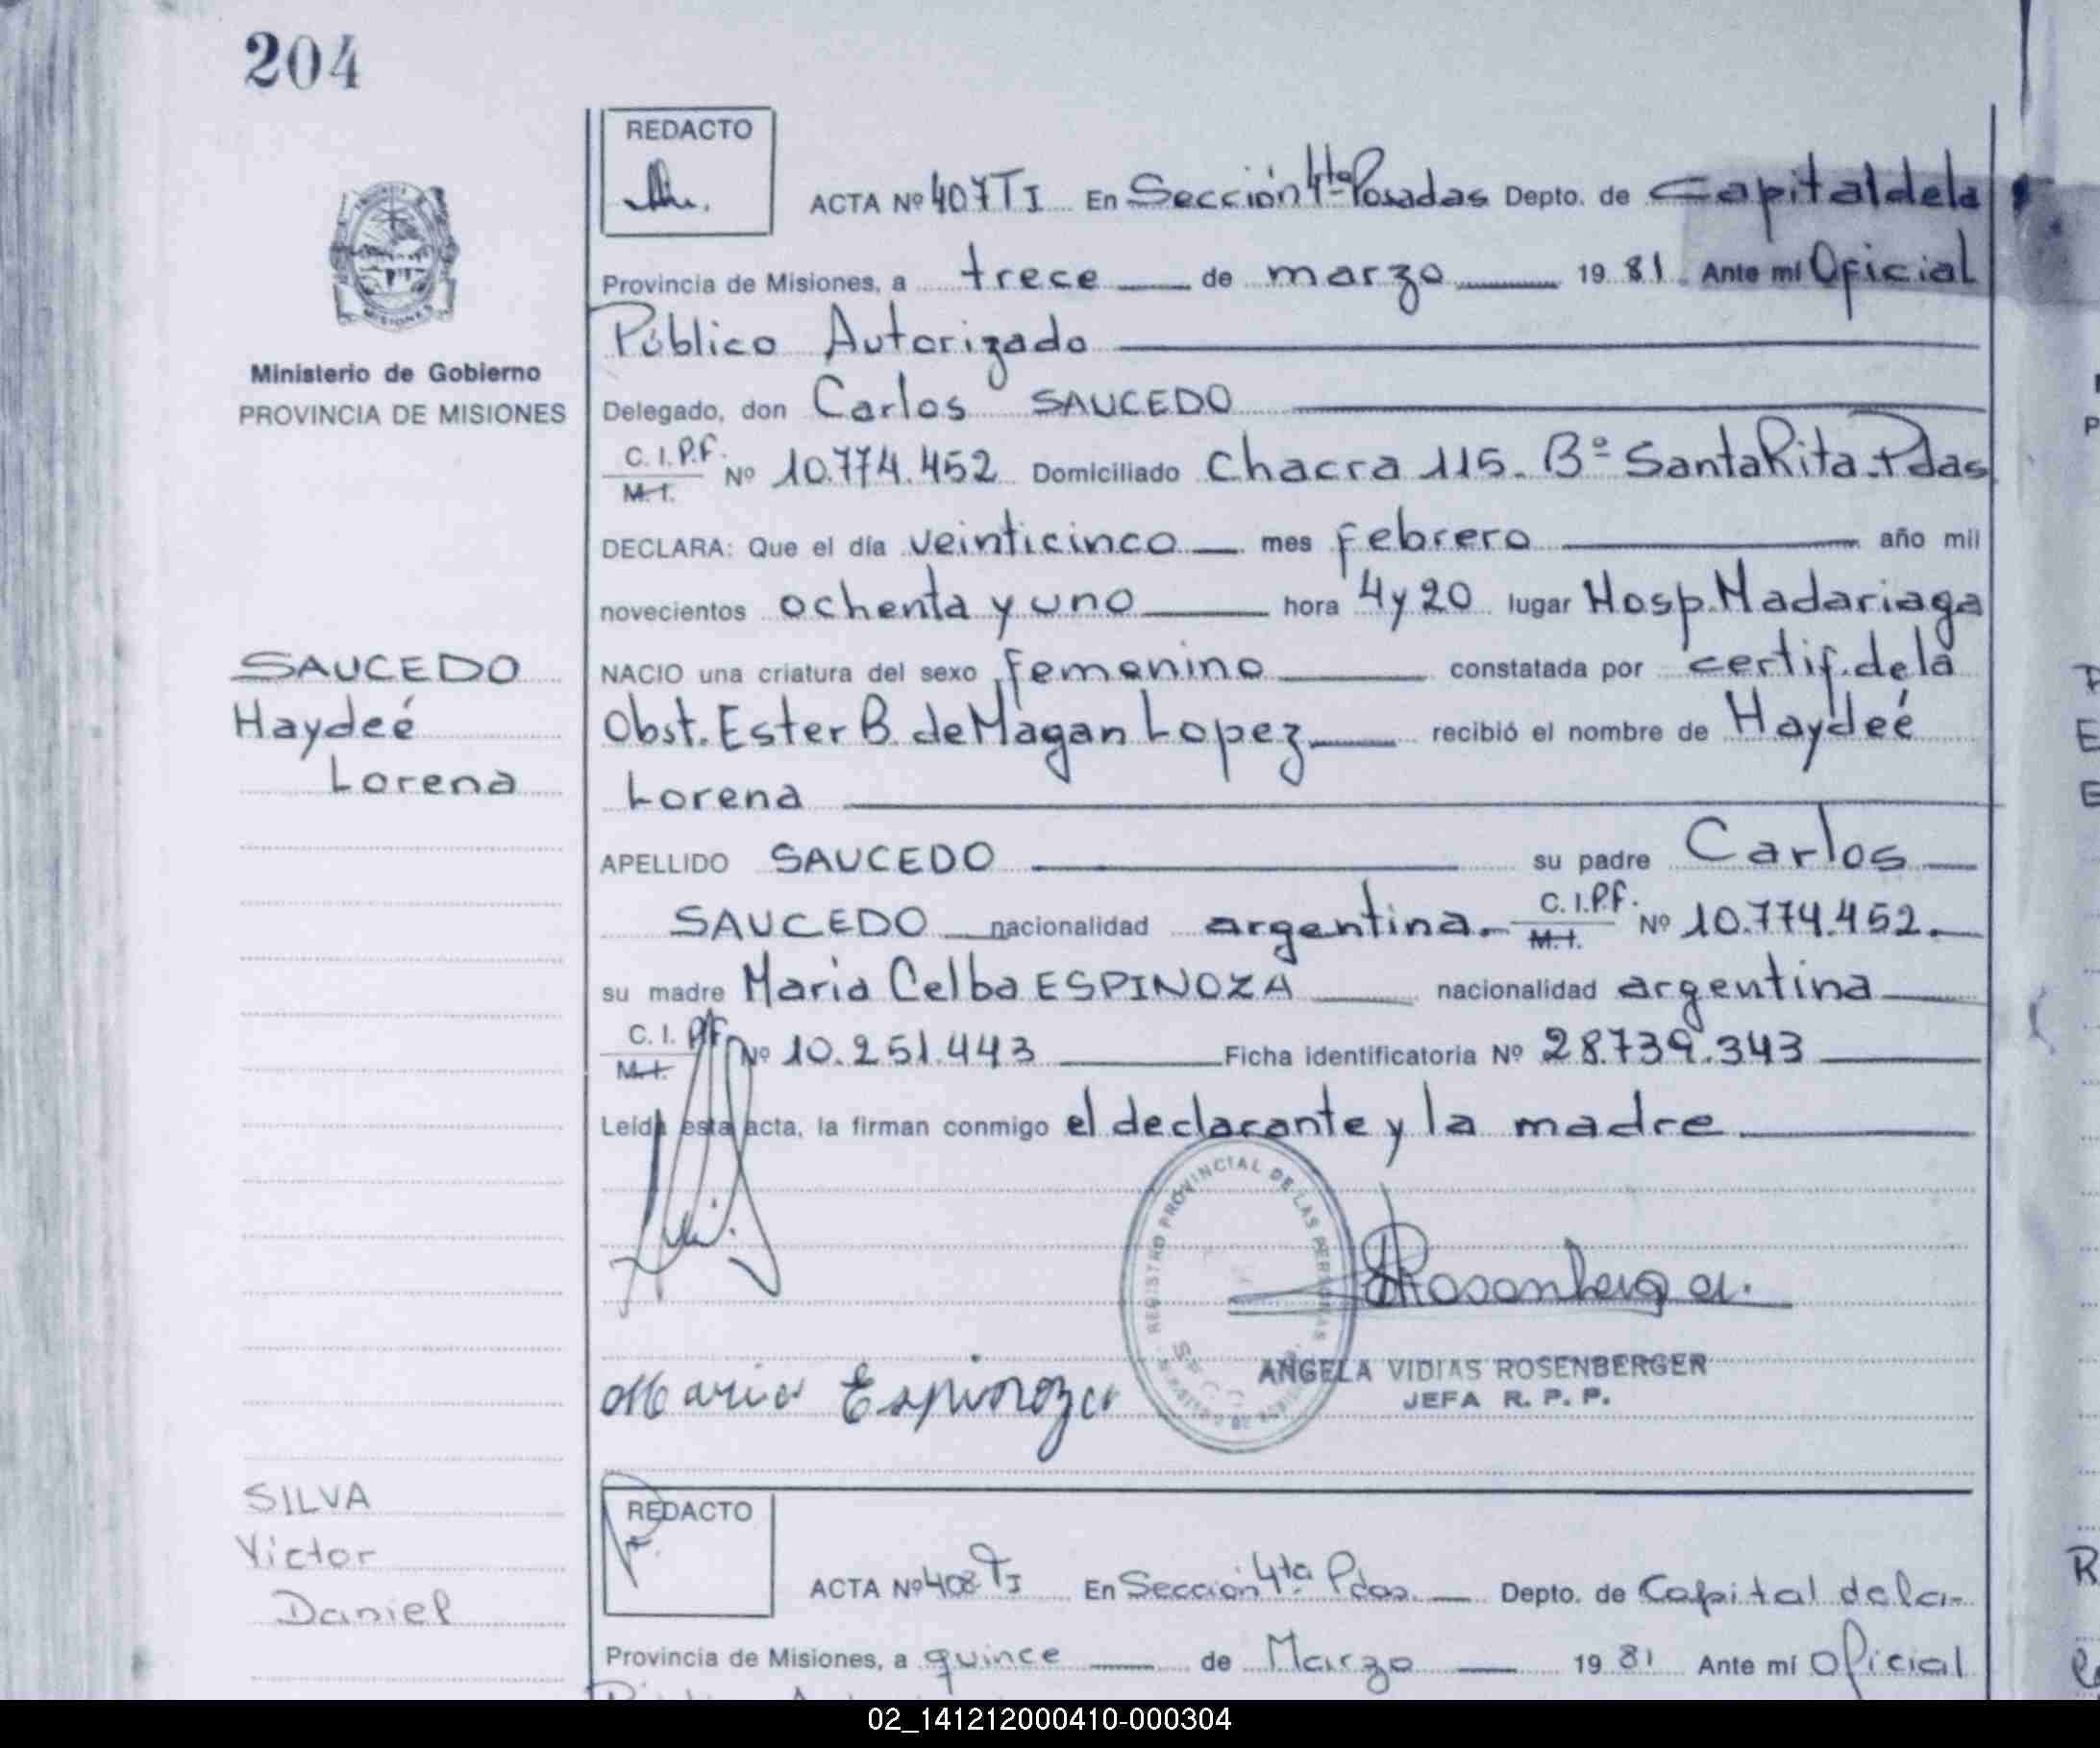 204
REDACTO
ACTA Nº 407 TI En Sección 4ta Posadas Depto. de Capital de la
Provincia de Misiones, a trece de marzo 19 81. Ante mí Oficial
Público Autorizado
Ministerio de Gobierno
PROVINCIA DE MISIONES
Delegado, don Carlos SAUCEDO
C. I. P.F. Nº 10.774.452 Domiciliado Chacra 115. Bº Santa Rita. Pdas
M. I.
DECLARA: Que el día veinticinco mes febrero año mil
novecientos ochenta y uno hora 4 y 20 lugar Hosp. Madariaga
SAUCEDO
Haydeé
Lorena
NACIO una criatura del sexo femenino constatada por certif. de la
Obst. Ester B. de Magan Lopez recibió el nombre de Haydeé
Lorena
APELLIDO SAUCEDO su padre Carlos
SAUCEDO nacionalidad argentina. C. I. P.F. Nº 10.774.452.
M. I.
su madre Maria Celba ESPINOZA nacionalidad argentina
C. I. P.F. Nº 10.251.443 Ficha identificatoria Nº 28.739.343
M. I.
Leída esta acta, la firman conmigo el declarante y la madre
REGISTRO PROVINCIAL DE LAS PERSONAS
ANGELA VIDIAS ROSENBERGER
JEFA R. P. P.
Maria Espinoza
SILVA
Victor
Daniel
REDACTO
ACTA Nº 408 TI En Sección 4ta Pdas. Depto. de Capital de la
Provincia de Misiones, a quince de Marzo 19 81 Ante mí Oficial
02_141212000410-000304